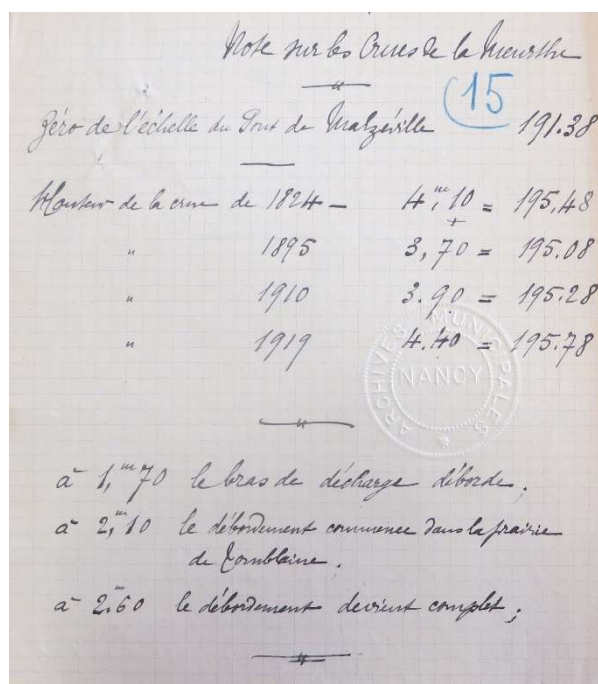 Note sur les Crues de la Meurthe
15
Zéro de l'échelle du Pont de Malzéville 191.38
Hauteur de la crue de 1824 - 4,m10 = 195,48
" 1895 3,70 = 195.08
" 1910 3.90 = 195.28
" 1919 4.40 = 195.78
ARCHIVES MUNICIPALES
NANCY
à 1,m70 le bras de décharge déborde,
à 2,m10 le débordement commence dans la prairie
de Tomblaine.
à 2.m60 le débordement devient complet,